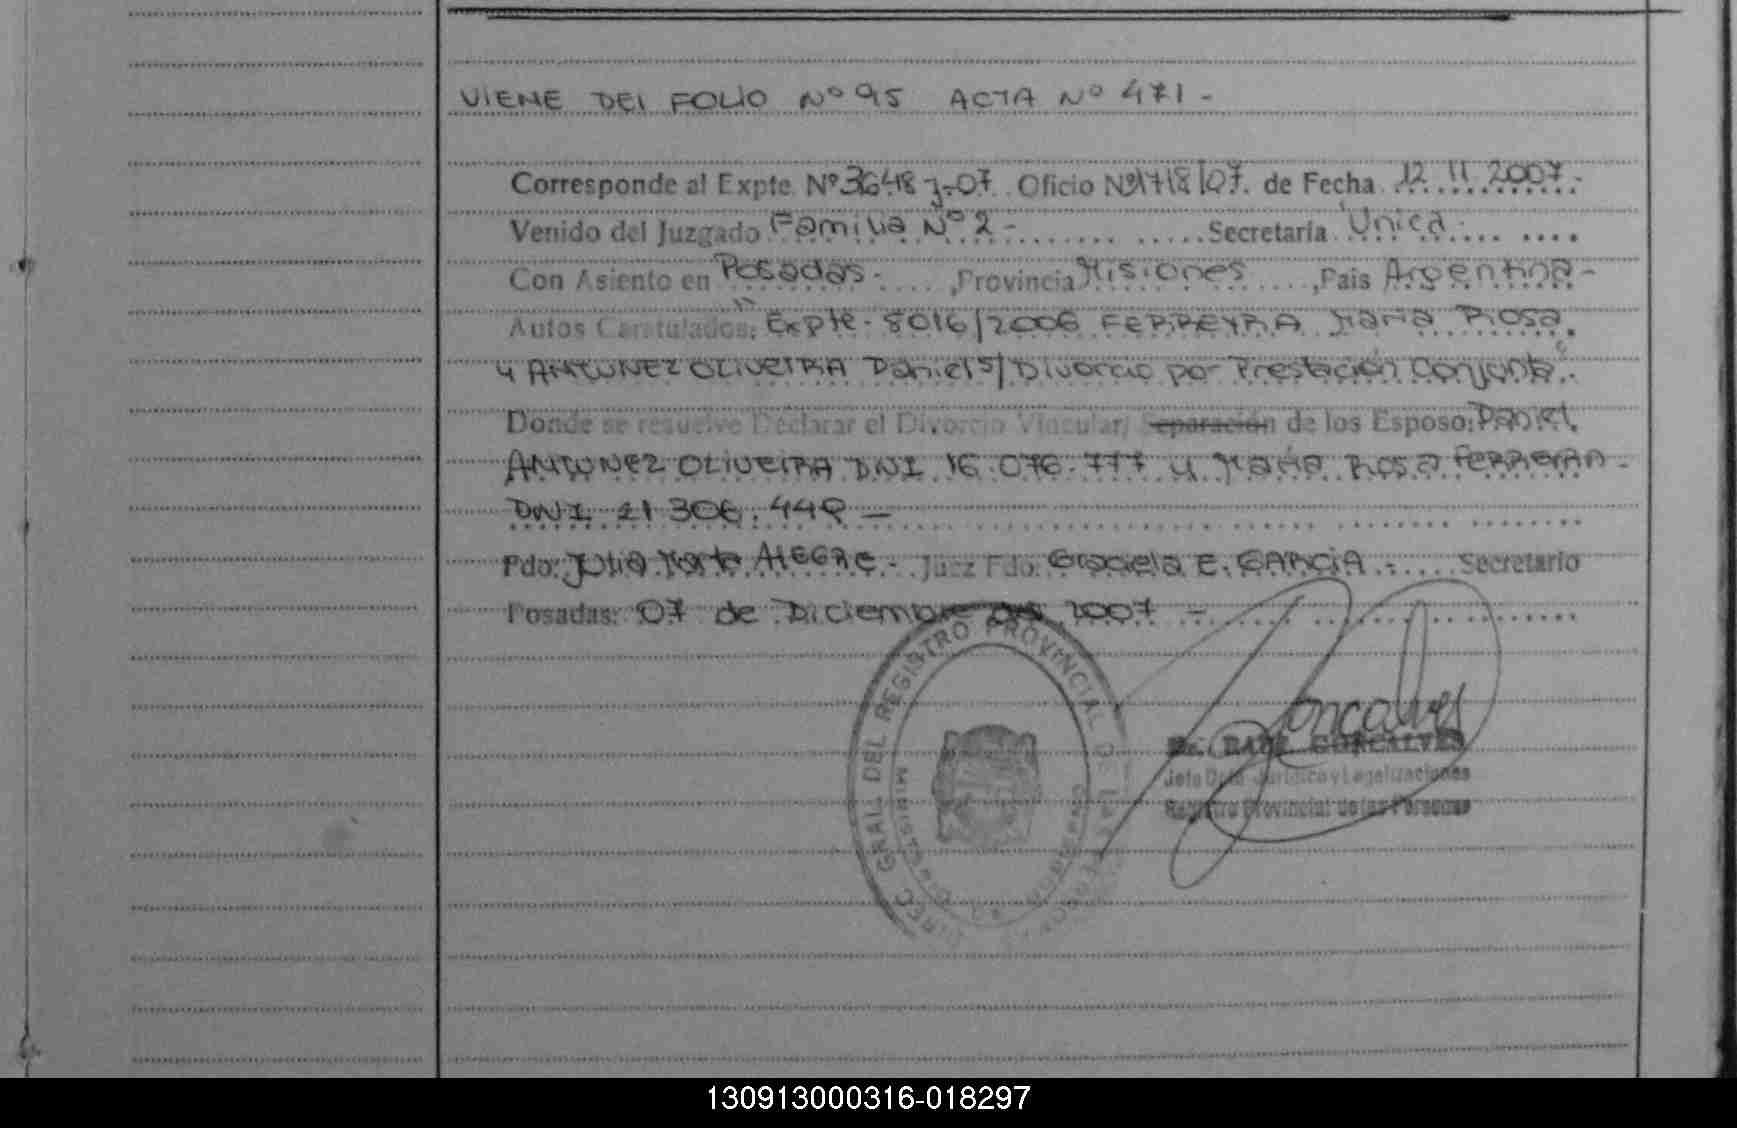 VIENE DEL FOLIO Nº 95 ACTA Nº 471 -
Corresponde al Expte. Nº 3648 J-07. Oficio Nº 1718/07. de Fecha 12 11 2007 -
Venido del Juzgado Familia Nº 2 - Secretaría Unica
Con Asiento en Posadas - ,Provincia Misiones ,Pais Argentina -
Autos Caratulados: " Expte. 8016/2006 FERREYRA Maria Rosa
y ANTUNEZ OLIVEIRA Daniel S/ Divorcio por Prestación Conjunta
Donde se resuelve Declarar el Divorcio Vincular/ Separación de los Esposo: Daniel
ANTUNEZ OLIVEIRA DNI 16.076.777 y Maria Rosa FERREYRA -
DNI 21 306.449 -
Fdo: Julia Marta ALEGRE - Juez Fdo: Graciela E. GARCIA - Secretario
Posadas: 07 de Diciembre del 2007 -
DIREC. GRAL DEL REGISTRO PROVINCIAL DE LAS PERSONAS
MINISTERIO DE GOBIERNO
Goncalves
Dr. RAUL GONCALVES
Jefe Dpto. Jurídico y Legalizaciones
Registro Provincial de las Personas
130913000316-018297